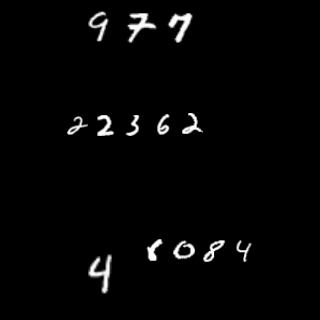 977
22362
4 8084